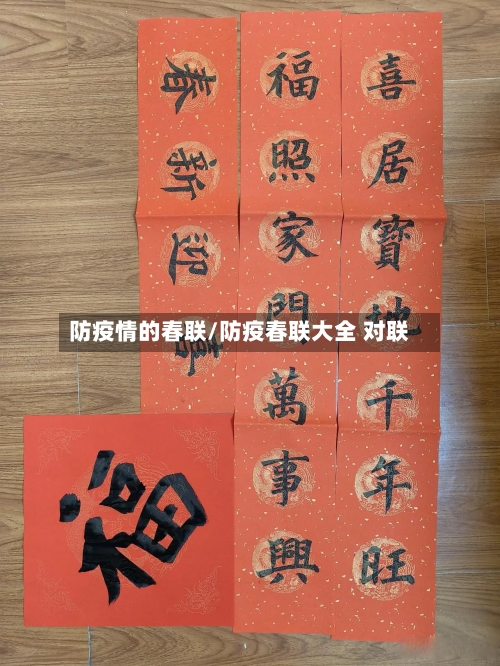 喜居寶地千年旺
福照家門萬事興
喜迎新春
福
防疫情的春联/防疫春联大全 对联